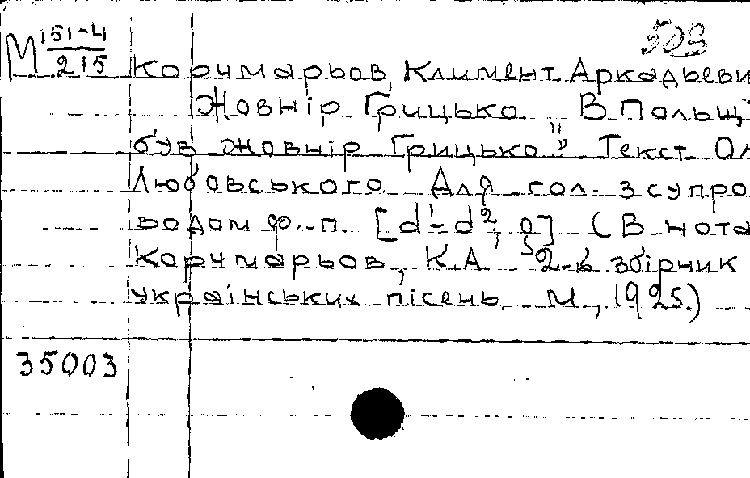 503
М 151-4
215
Корчмарьов, Климент Аркадьеви
Жовнір Грицько „В Польщ
був жовнір Грицько". Текст Ол
Любовського Для гол. з супро
водом ф.-п. [d¹-d², g] (В нота
Корчмарьов, К.А 2-й збірник
українських пісень. М., 1925.)
35003